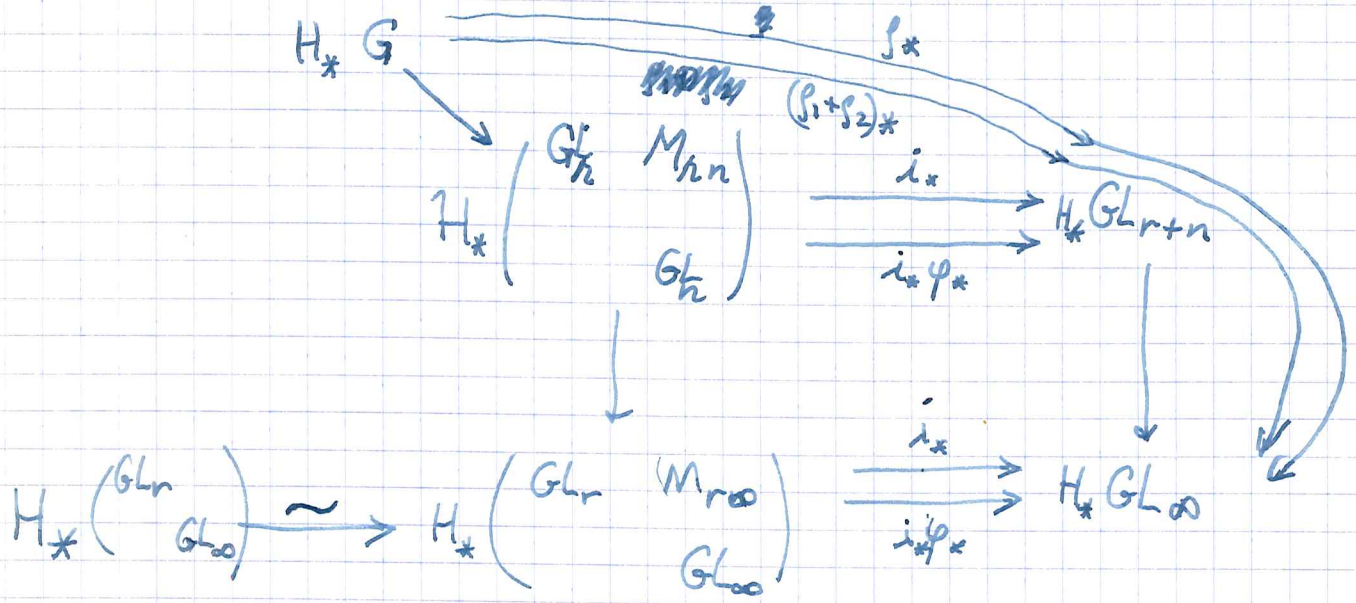 H_* G ρ_*
(ρ_1+ρ_2)_*
H_* ( GL_r M_{rn} GL_n ) i_* i_* φ_* H_* GL_{r+n}
H_* ( GL_r GL_∞ ) ∼ H_* ( GL_r M_{r∞} GL_∞ ) i_* i_* φ_* H_* GL_∞